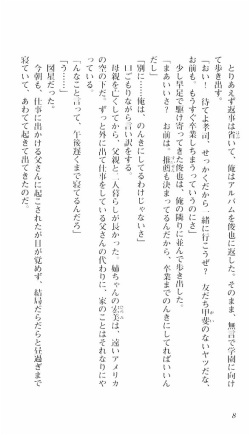 とりあえず返事は省いて、俺はアルバムを俊也に返した。そのまま、無言で学園に向け
て歩き出す。
「おい！　待てよ孝司　せっかくだから　緒に行こうぜ？　友だち甲斐のないヤツだな、
お前も、もうすぐ卒業しちまうっていうのにさ」
少し早足で駆け寄ってきた俊也は、俺の隣りに並んで歩き出した。
「まあいいさ？　お前は、推薦も決まってるんだから、卒業までのんきにしてればいいん
だし」
「別に……俺は、のんきにしてるわけじゃないさ」
口ごもりながら言い訳をする。
母親を亡くしてから、父親と二人暮らしが長かった。姉ちゃんの宏美は、遠いアメリカ
の空の下だ。ずっと外に出て仕事をしている父さんの代わりに、家のことはそれなりにや
っている。
「んなこと言って、午後遅くまで寝てるんだろ」
「う……」
図星だった。
今朝も、仕事に出かける父さんに起こされたが目が覚めず、結局だらだらと昼過ぎまで
寝ていて、あわてて起きて出てきたのだ。
8